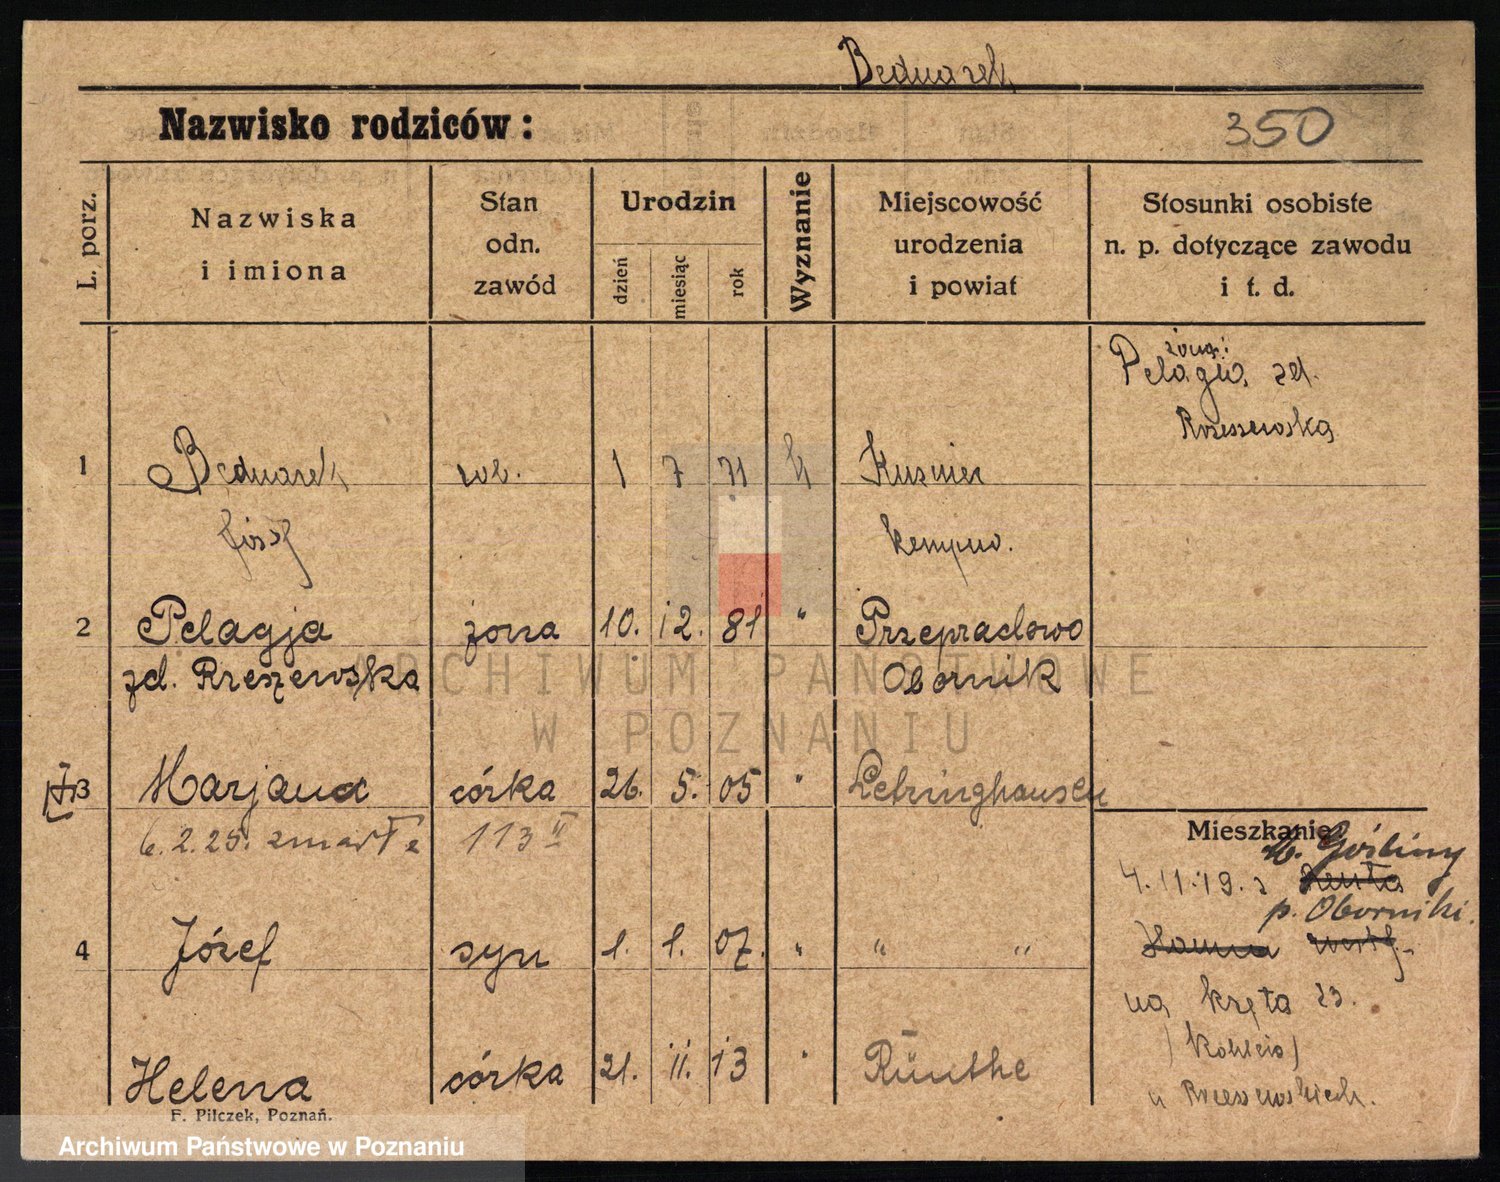 Bednarek
Nazwisko rodziców:
350
L. porz.
Nazwiska
i imiona
Stan
odn.
zawód
Urodzin
dzień
miesiąc
rok
Wyznanie
Miejscowość
urodzenia
i powiat
Stosunki osobiste
n. p. dotyczące zawodu
i t. d.
Pelagia zd.
Rzeszewska
1 Bednarek rob. 1 7 71 k
Józef Kempno.
2 Pelagja żona 10. 12. 81 " Przepradowo
zd. Rzeszewska Obornik
3 Marjanna córka 26. 5. 05 " Letringhausen
6.2.25. zmarła 113 II
Mieszkanie
M. Gośliny
4.11.19. z
p. Oborniki.
4 Józef syn 1. 1. 07. " " "
na kręta 23.
Helena córka 21. 11. 13 " Rünthe
u Rzeszewskich.
F. Pilczek, Poznań.
ARCHIWUM PAŃSTWOWE
W POZNANIU
Archiwum Państwowe w Poznaniu